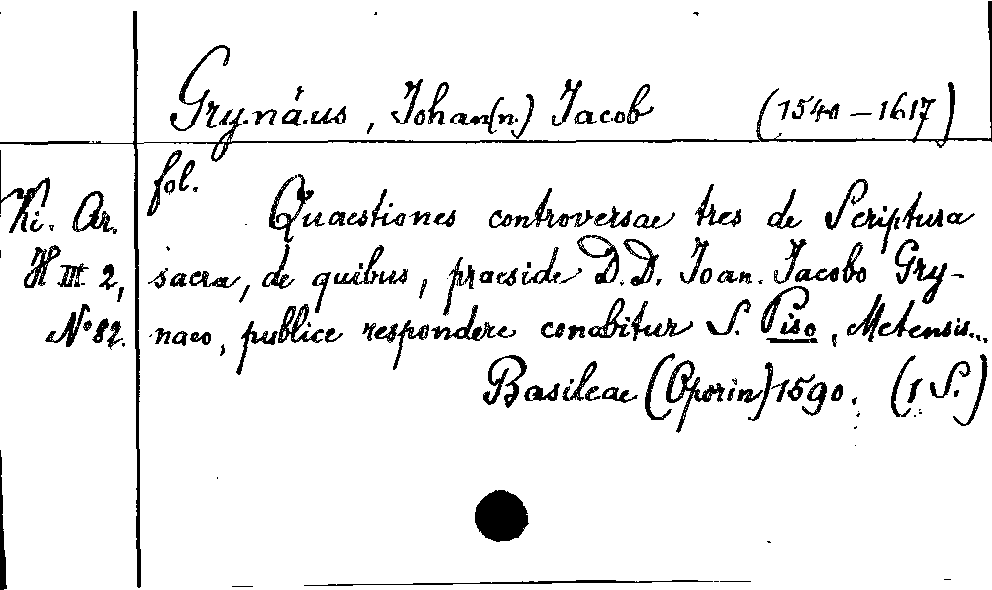 Grynäus, Johan(n.) Jacob (1540-1617)
fol.
Ki. Ar. Quaestiones controversae tres de Scriptura
H III 2, sacra, de quibus, praeside D.D. Joan. Jacobo Gry-
No 82. naeo, publice respondere conabitur S. Piso, Metensis...
Basileae (Oporin) 1590. (1 S.)